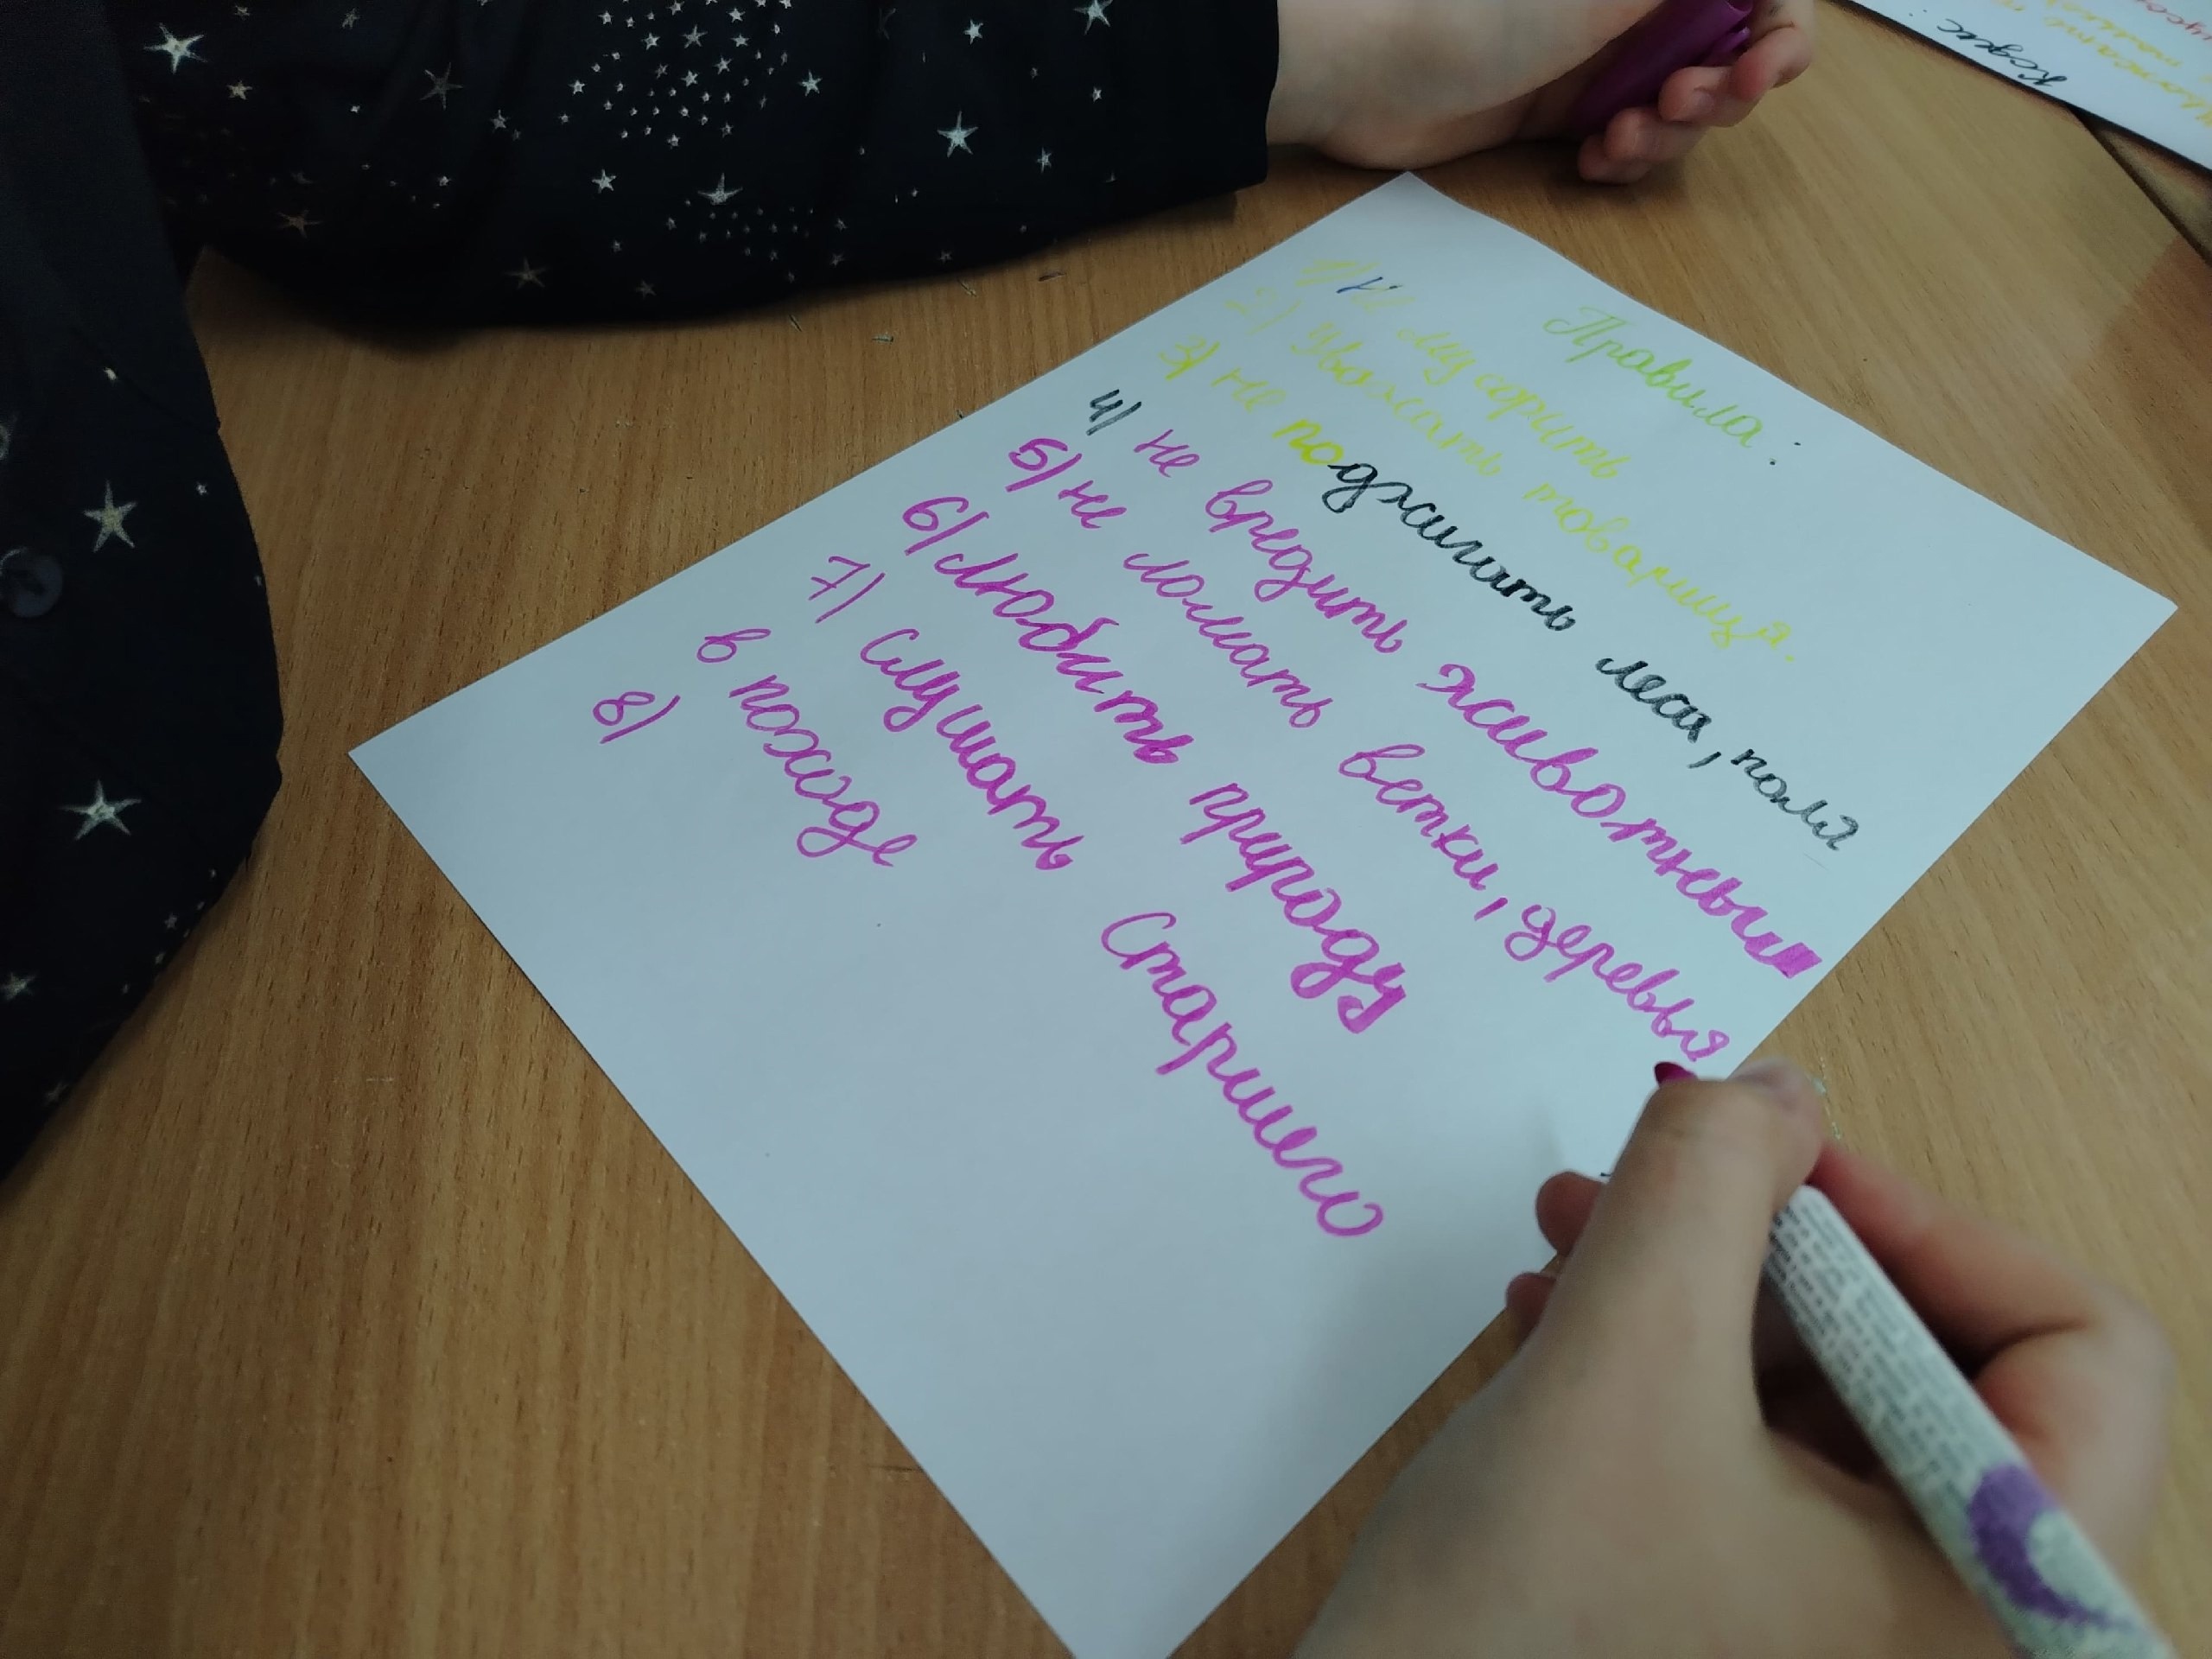 Правила:
1) Не мусорить
2) Уважать товарища.
3) не поджигать леса, поля
4) не вредить животным
5) не ломать ветки, деревья
6) Любить природу
7) Слушать Старшего
в походе
8)
Кодекс: